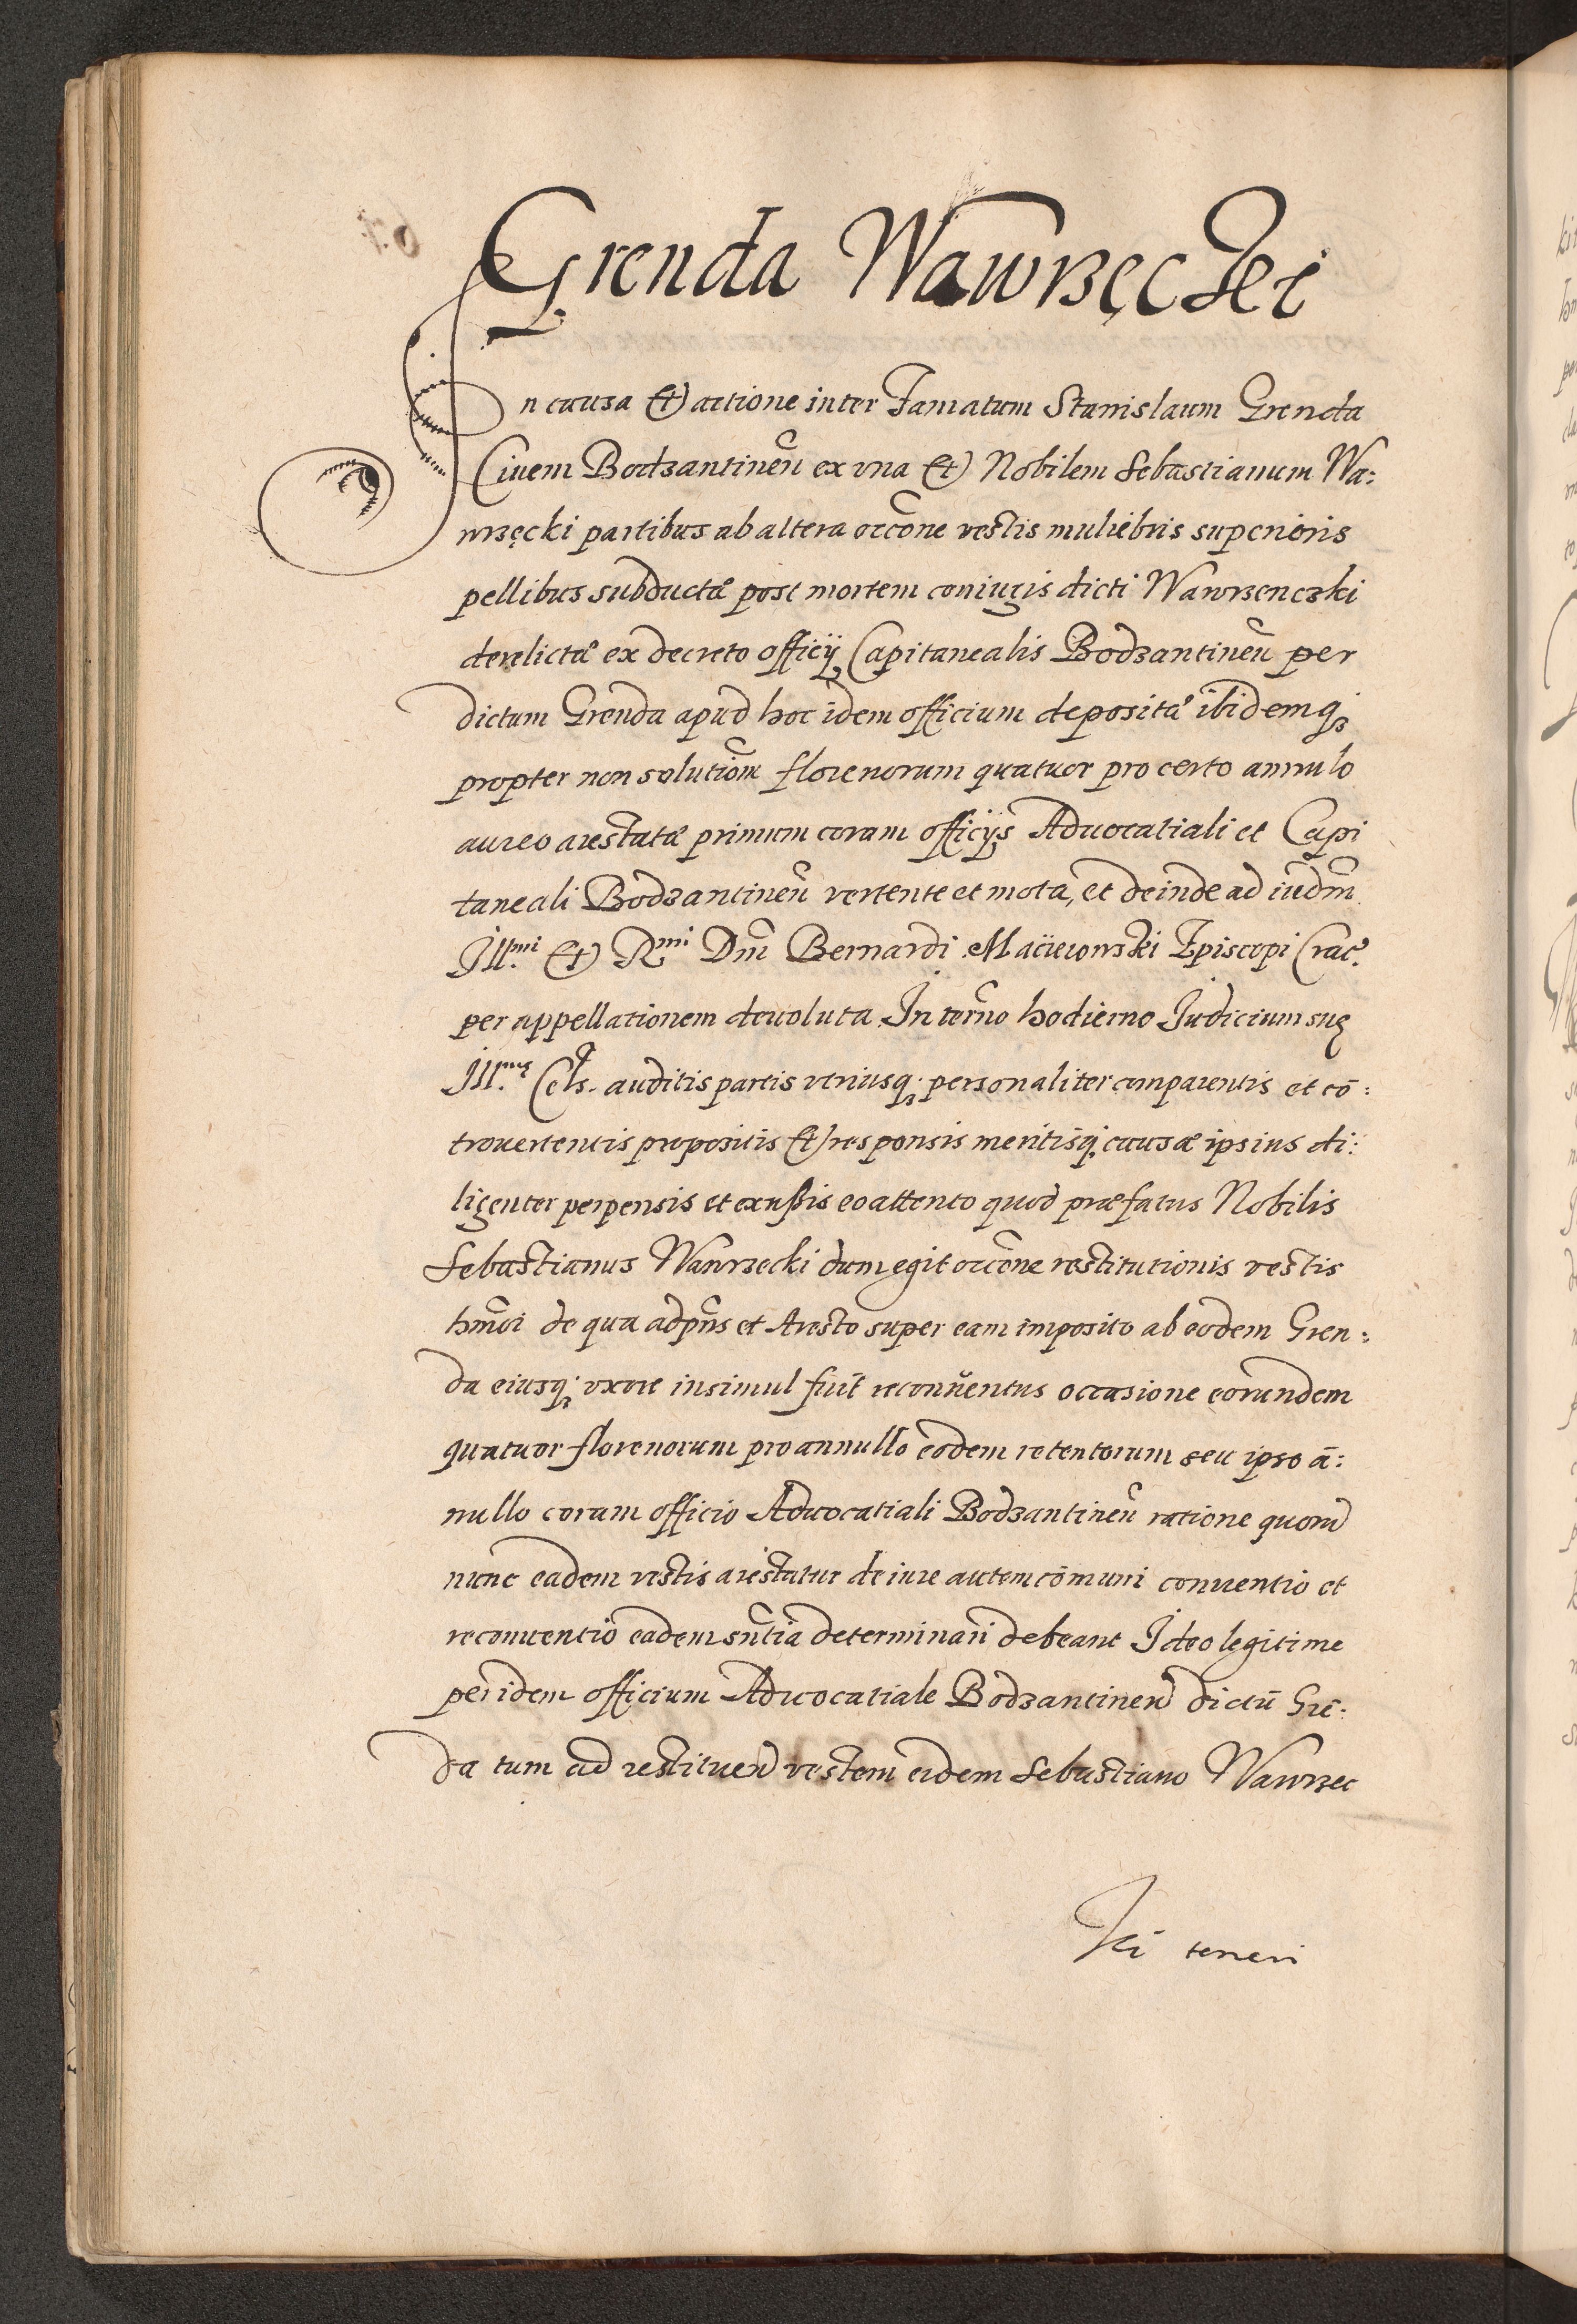 Grenda Wawrzęcki
In causa et actione inter Famatum Stanislaum Grenda
Ciuem Bodzantineñ ex vna et Nobilem Sebastianum Wa:
wrzęcki partibus ab altera occõne vestis muliebris superioris
pellibus subductæ post mortem coniugis dicti Wawrzenczki
derelictæ ex decreto officij Capitanealis Bodzantineñ per
dictum Grenda apud hoc idem officium depositæ ibidemq3
propter non solutiõm florenorum quatuor pro certo annulo
aureo arestatæ primum coram officijs Aduocatiali et Capi
taneali Bodzantineñ vertente et mota, et deinde ad iudm̃
Ill.mi et Rmi Dm̃ Bernardi Macieiowski Episcopi Crac.
per appellationem deuoluta In term̃o hodierno Judicium suę
Ill.mę Cels. auditis partis vtriusq3 personaliter comparentis et cō:
trouertentis propositis et responsis meritisq3 causæ ipsius di:
ligenter perpensis et exußis eo attento quod præfatus Nobilis
Sebastianus Wawrzecki dum egit occõne restitutionis vestis
hm̃oi de qua ad pñs et Aresto super eam imposito ab eodem Gren:
da eiusq3 vxore insimul fuit reconuentus occasione eorundem
quatuor florenorum pro annullo eodem retentorum seu ipso ā:
nullo coram officio Aduocatiali Bodzantineñ ratione quorū
nunc eadem vestis arestatur de iure autem cōmuni conuentio et
reconuentio eadem sñtia determinari debeant Ideo legitime
per idem officium Aduocatiale Bodzantineñ dictū Grē:
da tum ad restituend vestem eidem Sebastiano Wawrzec
ki teneri